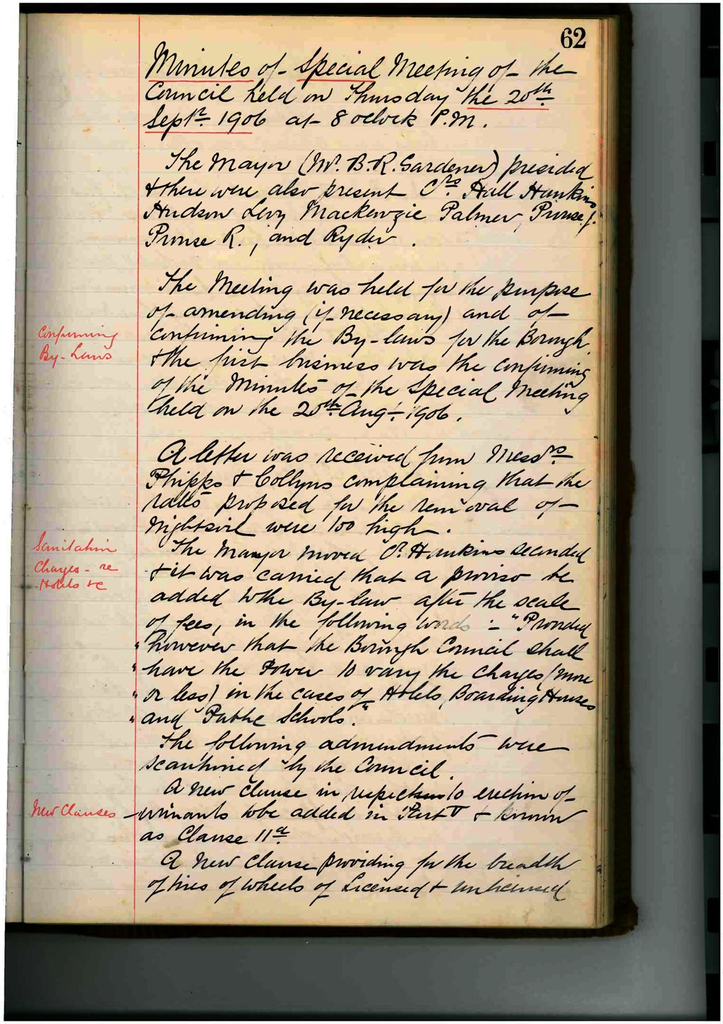 62
Minutes of Special Meeting of the
Council held on Thursday the 20th
Septr 1906 at 8 oclock P.M.
The Mayor (Mr. B.R. Gardener) presided
& there were also present Crs Hall Hawkins
Hudson Levy Mackenzie Palmer, Prowse J.
Prowse R., and Ryder.
The Meeting was held for the purpose
of amending (if necessary) and of
Confirming
By-Laws
confirming the By-laws for the Borough
& the first business was the confirming
of the Minutes of the Special Meeting
held on the 20th Aug: 1906.
A letter was received from Messrs
Phipps & Collyns complaining that the
rates proposed for the removal of
Nightsoil were too high.
Sanitation
Charges - re
Hotels &c
The Mayor moved Cr. Hawkins seconded
& it was carried that a proviso be
added to the By-law after the scale
of fees, in the following words :- "Provided
"however that the Borough Council shall
"have the Power to vary the charges (more
"or less) in the cases of Hotels, Boarding Houses
"and Public Schools".
The following admendments were
scantioned by the Council.
A new clause in respect to erection of
New Clauses -
urinants to be added in Part V & known
as Clause 11a
A New Clause providing for the breadth
of tires of wheels of Licensed & unlicensed